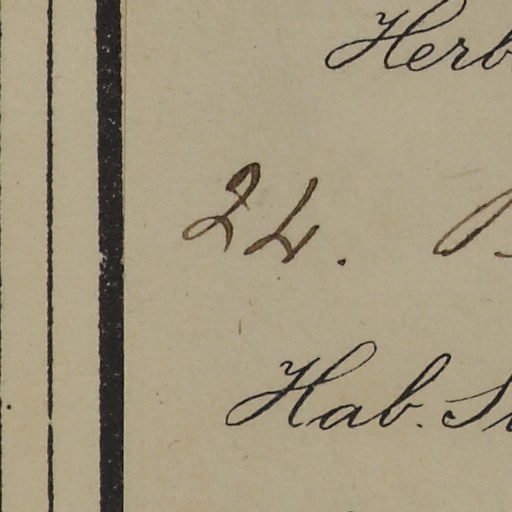 Herb
24.
Hab.